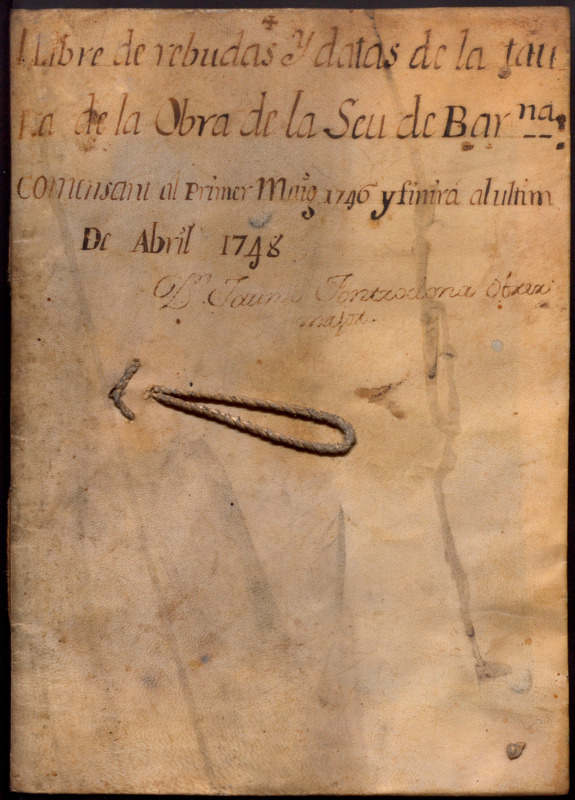 ✠
LLibre de rebudas Y datas de la tau
la de la Obra de la Seu de Barna.
Comensant al Primer Maig 1746 y finirá al ultim
De Abril 1748
Dr. Jaume Fontrodona Obrer
major.